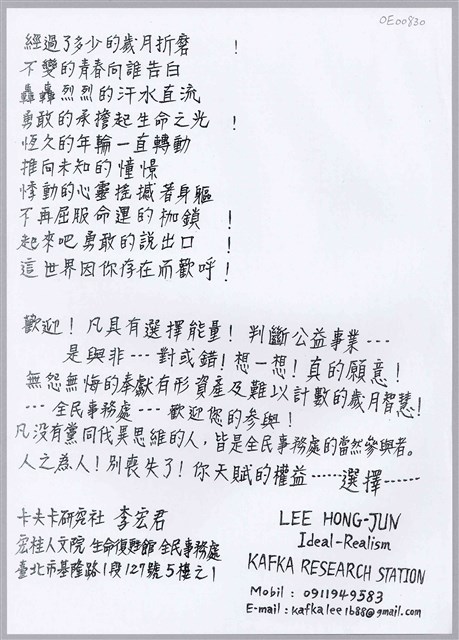 OE00830
經過了多少的歲月折磨 !
不變的青春向誰告白
轟轟烈烈的汗水直流
勇敢的承擔起生命之光 !
恆久的年輪一直轉動
推向未知的憧憬
悸動的心靈搖撼著身軀
不再屈服命運的枷鎖 !
起來吧勇敢的說出口 !
這世界因你存在而歡呼!
歡迎! 凡具有選擇能量! 判斷公益事業---
是與非---對或錯!想一想!真的願意!
無怨無悔的奉獻有形資產及難以計數的歲月智慧!
---全民事務處---歡迎您的參與!
凡沒有黨同伐異思維的人,皆是全民事務處的當然參與者。
人之為人!別喪失了!你天賦的權益------選擇------
卡夫卡研究社 李宏君
宏桂人文院 生命復甦館 全民事務處
臺北市基隆路1段127號5樓之1
LEE HONG-JUN
Ideal-Realism
KAFKA RESEARCH STATION
Mobil: 0911949583
E-mail: kafkalee1688@gmail.com